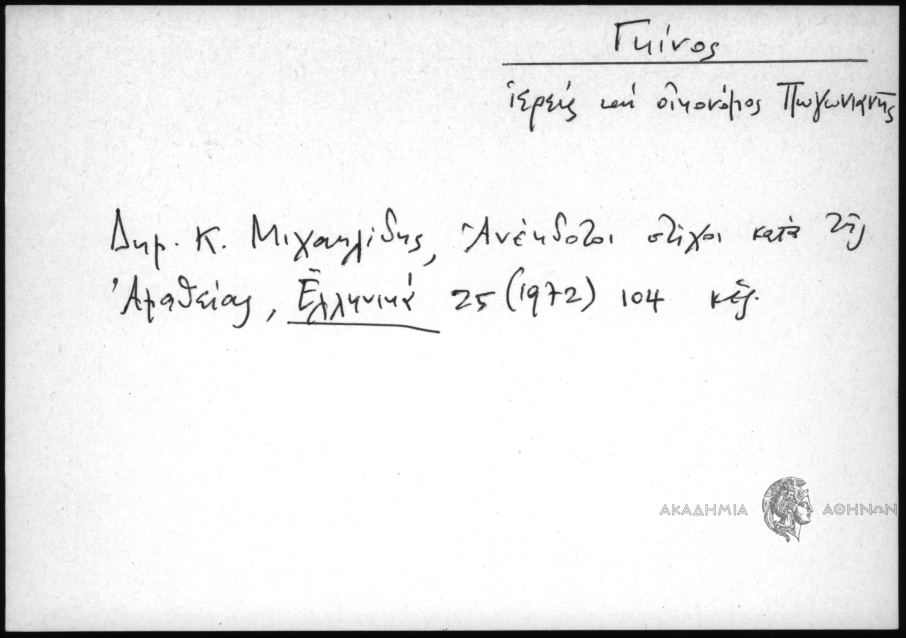 Γκίνος
ἱερεὺς καὶ οἰκονόμος Πωγωνιανῆς
Δημ. Κ. Μιχαηλίδης, Ἀνέκδοτοι στίχοι κατὰ τῆς
Ἀμαθείας, Ἑλληνικά 25 (1972) 104 κἑξ.
ΑΚΑΔΗΜΙΑ ΑΘΗΝΩΝ